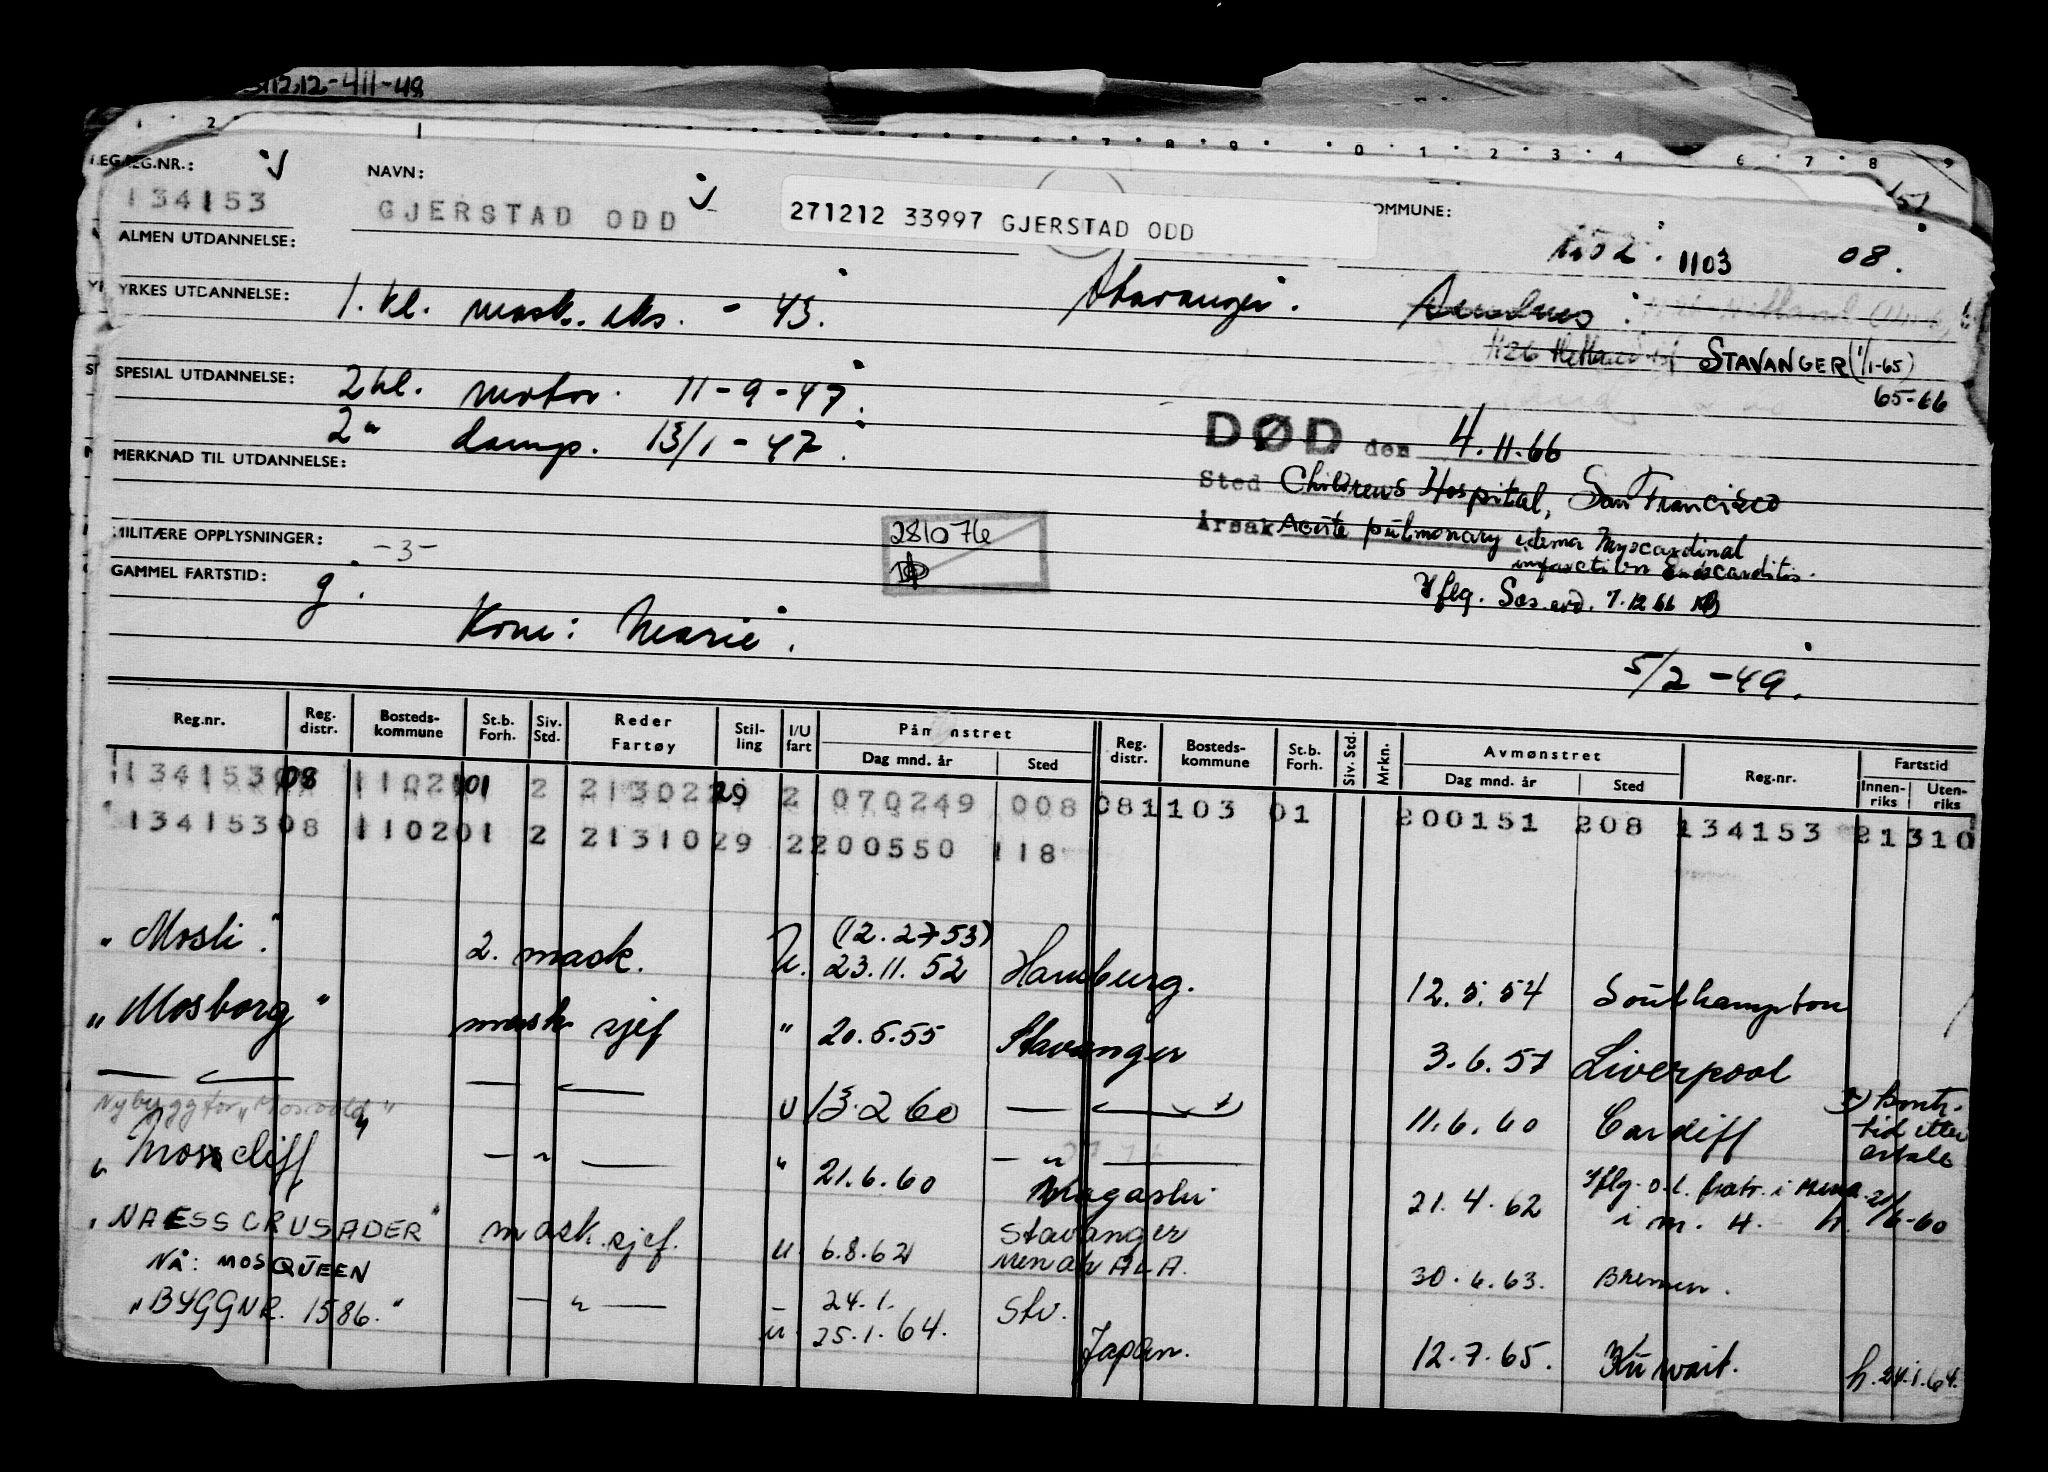 1212-411-48
REG.NR.: NAVN: KOMMUNE:
134153 GJERSTAD ODD 271212 33997 GJERSTAD ODD
1103 08.
ALMEN UTDANNELSE:
YRKES UTDANNELSE: 1. kl. mask. eks. - 43. Stavanger.
STAVANGER (1/1-65)
65-66
SPESIAL UTDANNELSE: 2 kl. motor. 11-9-47.
2 " damp. 13/1-47.
DØD den 4.11.66
MERKNAD TIL UTDANNELSE:
Sted Childrens Hospital, San Francisco
Årsak Acute pulmonary edema Myocardinal
infarction Endocarditis.
Iflg. 7.12 66
MILITÆRE OPPLYSNINGER: -3- 281076
GAMMEL FARTSTID: g.
Kone: Marie.
5/2-49.
Reg.nr. Reg. distr. Bosteds-kommune St.b. Forh. Siv. Std. Reder Fartøy Stil-ling I/U fart Påmønstret Dag mnd. år Sted Reg. distr. Bosteds-kommune St.b. Forh. Siv. Std. Mrkn. Avmønstret Dag mnd. år Sted Reg.nr. Fartstid Innen-riks Uten-riks
134153 08 1102 01 2 21302 29 2 070249 008 08 1103 01 200151 208 134153 21310
134153 08 1102 01 2 21310 29 2 200550 118
(12.2-53)
"Mosli". 2. mask. U. 23.11.52 Hamburg. 12.5.54 Southampton
"Mosborg" mask sjef " 20.5.55 Stavanger 3.6.57 Liverpool
U 13.2 60 11.6.60 Cardiff
Nybygg for "Mosvold"
"Mosscliff — " — " 21.6.60 — " — 21.4.62
"NAESS CRUSADER" mask.sjef. u. 6.8.62 Stavanger
NÅ: MOSQUEEN Menah ALA. 30.6.63. Bremen.
"BYGGNR. 1586." — " — 24.1. Stv.
u. 25.1.64. Japan. 12.7.65. Kuwait. h.24.1.64.